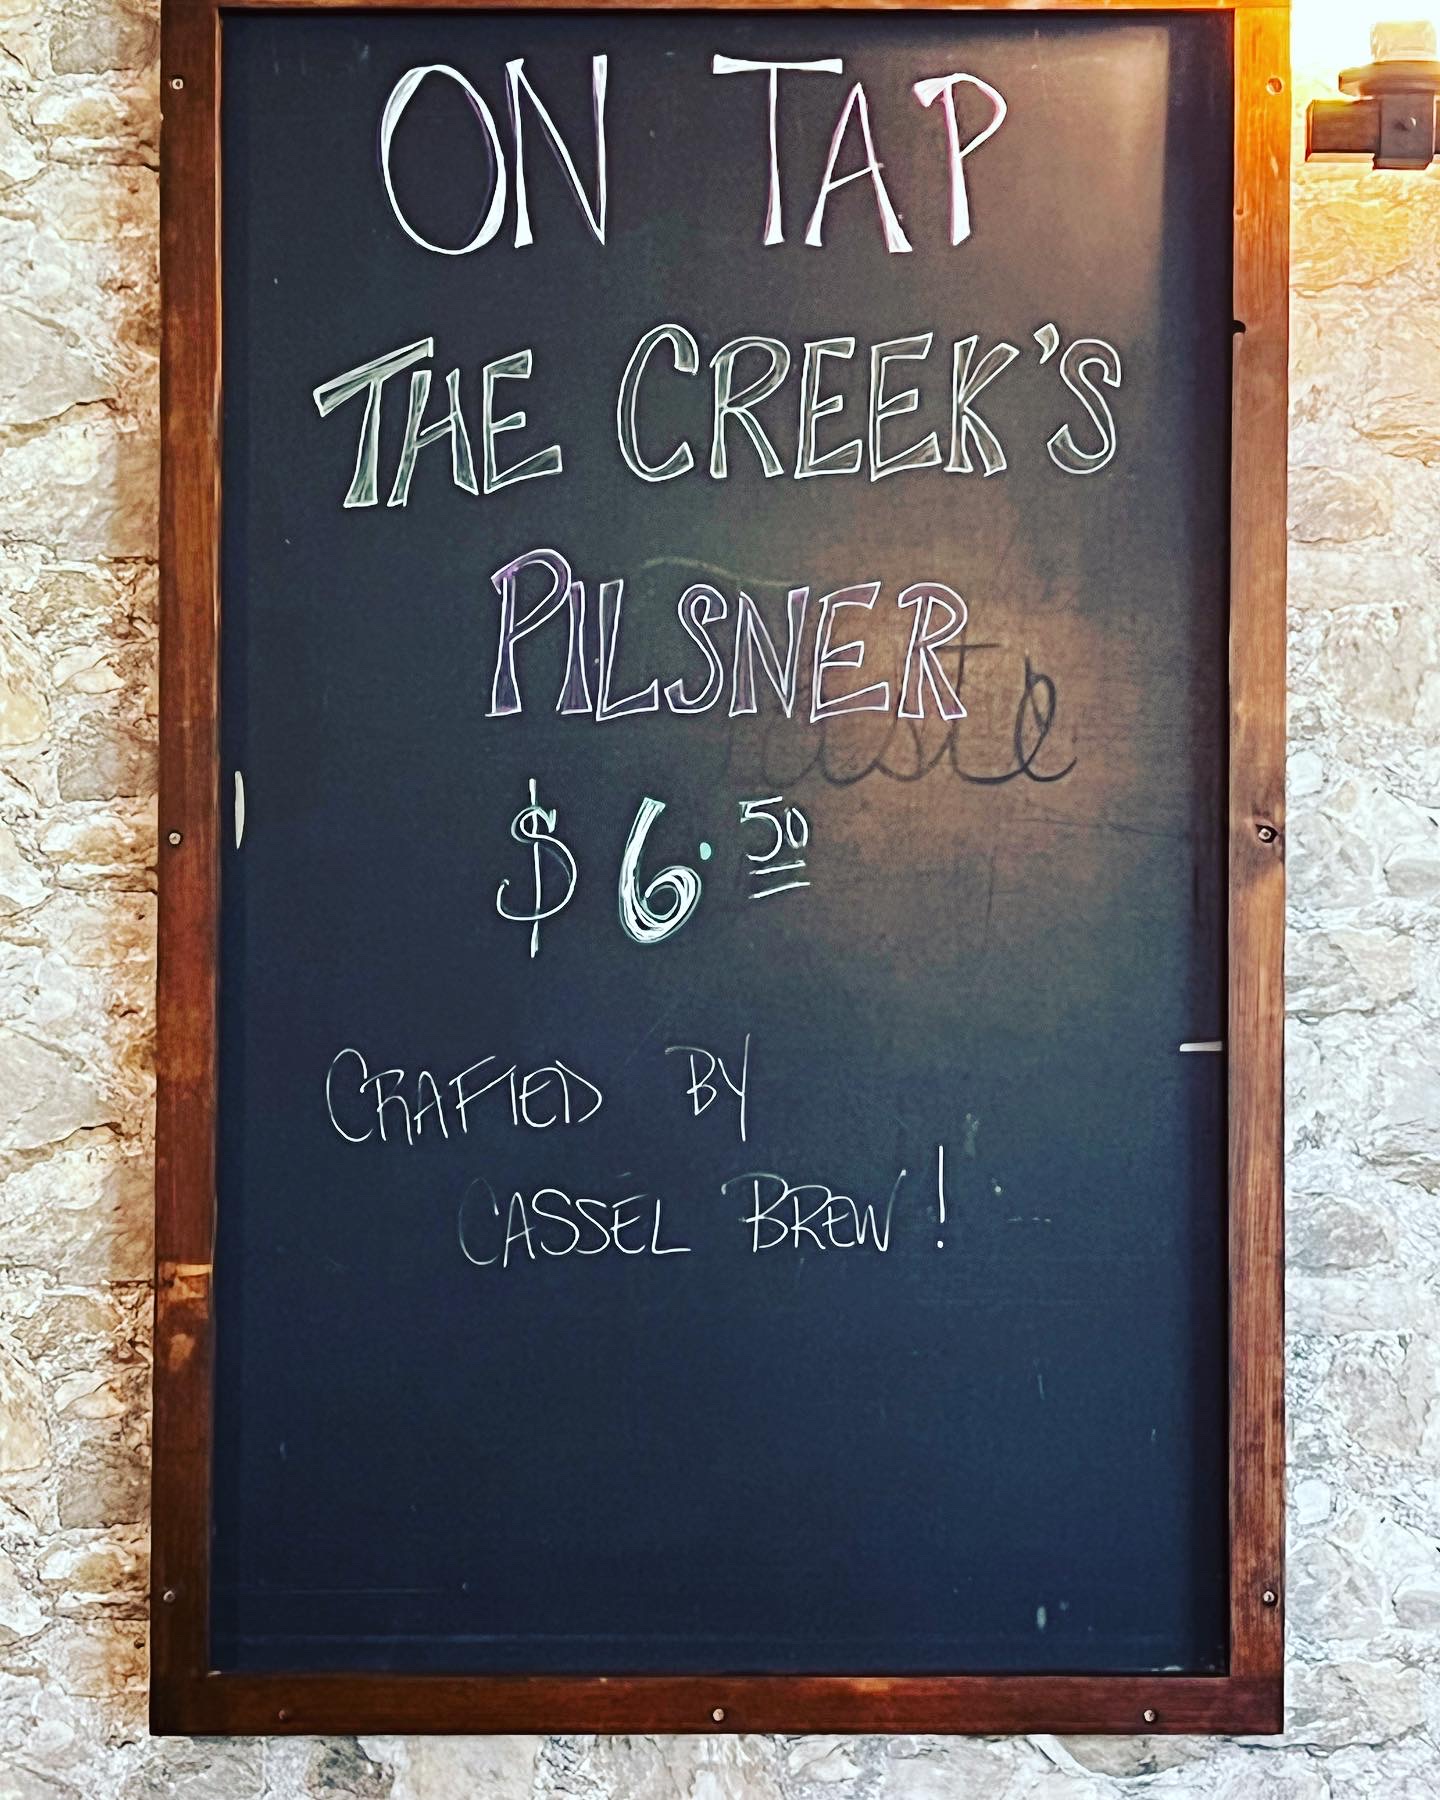 ON TAP
THE CREEK'S
PILSNER
$6.50
CRAFTED BY
CASSEL BREW!